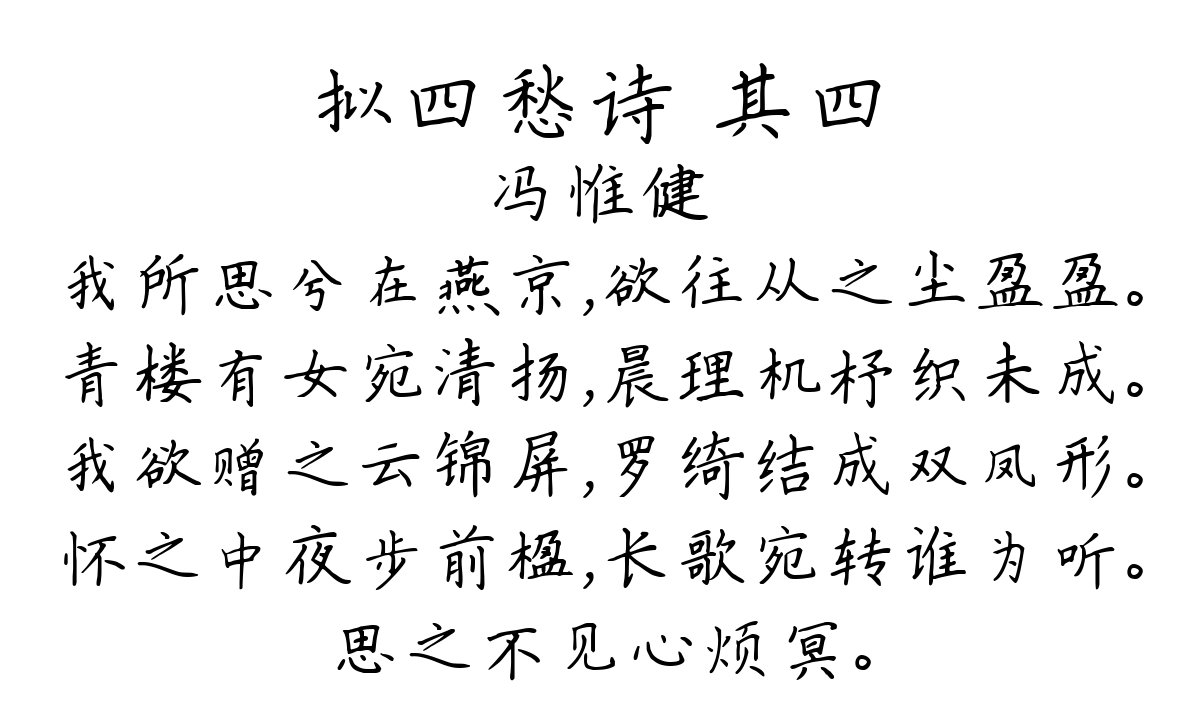 拟四愁诗 其四
冯惟健
我所思兮在燕京,欲往从之尘盈盈。
青楼有女宛清扬,晨理机杼织未成。
我欲赠之云锦屏,罗绮结成双凤形。
怀之中夜步前楹,长歌宛转谁为听。
思之不见心烦冥。